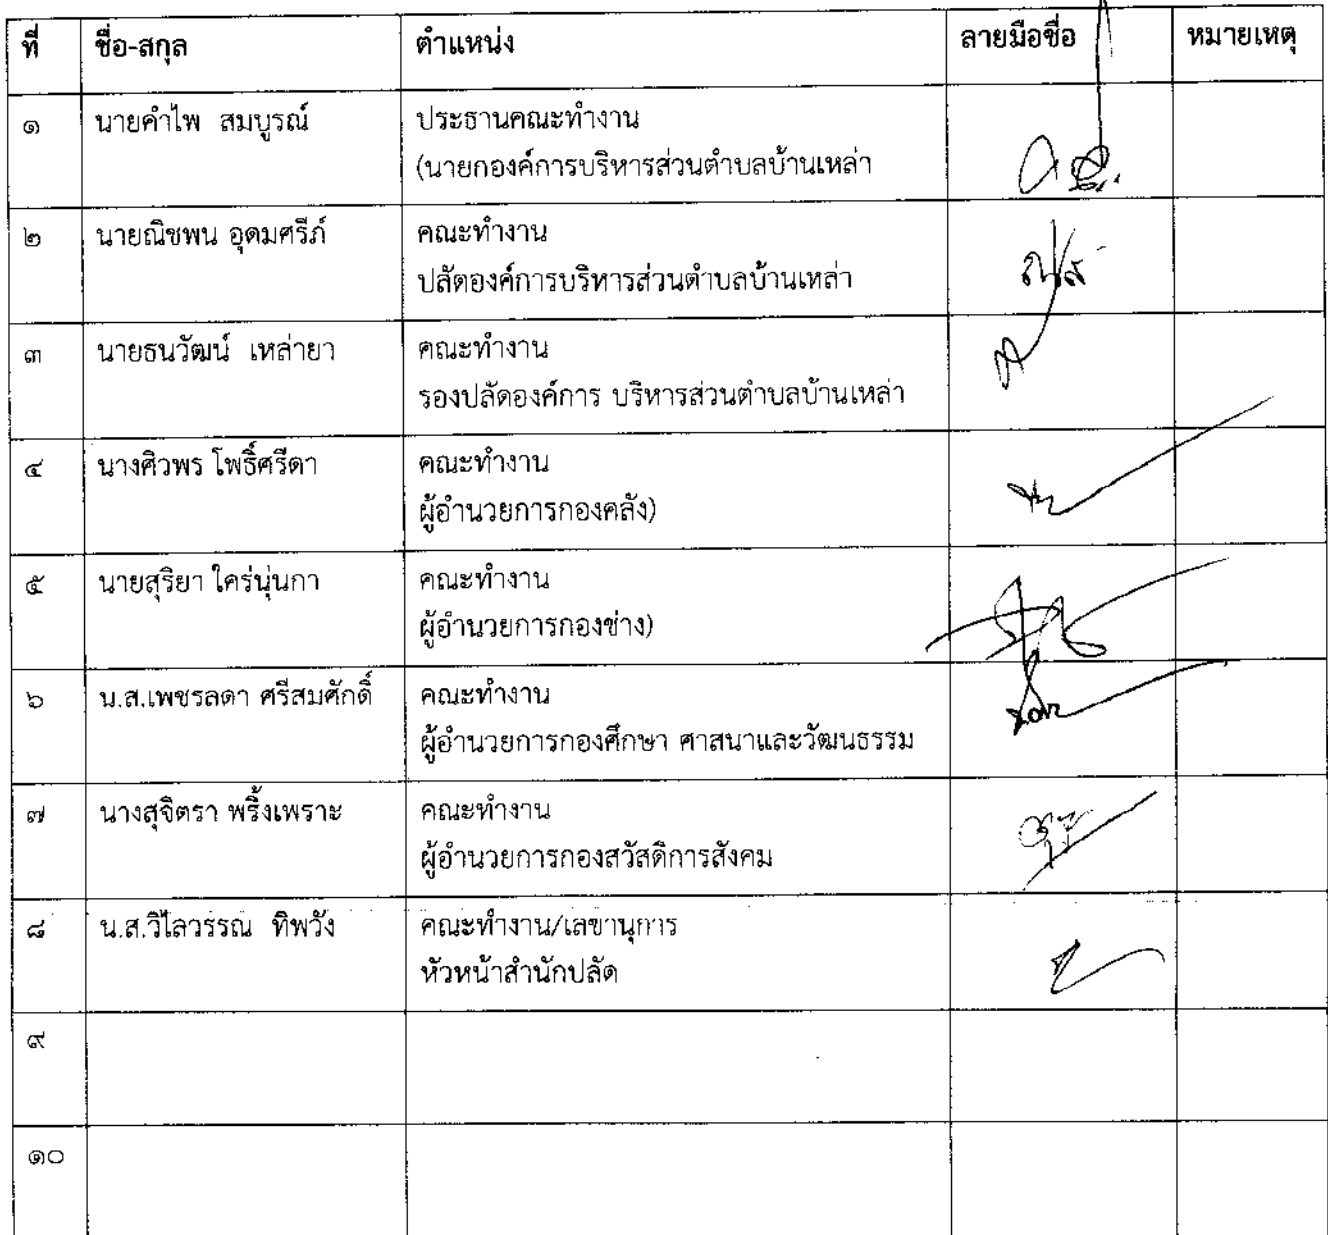 ที่ ชื่อ-สกุล ตำแหน่ง ลายมือชื่อ หมายเหตุ
๑ นายคำไพ สมบูรณ์ ประธานคณะทำงาน
(นายกองค์การบริหารส่วนตำบลบ้านเหล่า
๒ นายณิชพน อุดมศรีภ์ คณะทำงาน
ปลัดองค์การบริหารส่วนตำบลบ้านเหล่า
๓ นายธนวัฒน์ เหล่ายา คณะทำงาน
รองปลัดองค์การ บริหารส่วนตำบลบ้านเหล่า
๔ นางศิวพร โพธิ์ศรีดา คณะทำงาน
ผู้อำนวยการกองคลัง)
๕ นายสุริยา ใคร่นุ่นกา คณะทำงาน
ผู้อำนวยการกองช่าง)
๖ น.ส.เพชรลดา ศรีสมศักดิ์ คณะทำงาน
ผู้อำนวยการกองศึกษา ศาสนาและวัฒนธรรม
๗ นางสุจิตรา พริ้งเพราะ คณะทำงาน
ผู้อำนวยการกองสวัสดิการสังคม
๘ น.ส.วิไลวรรณ ทิพวัง คณะทำงาน/เลขานุการ
หัวหน้าสำนักปลัด
๙
๑๐